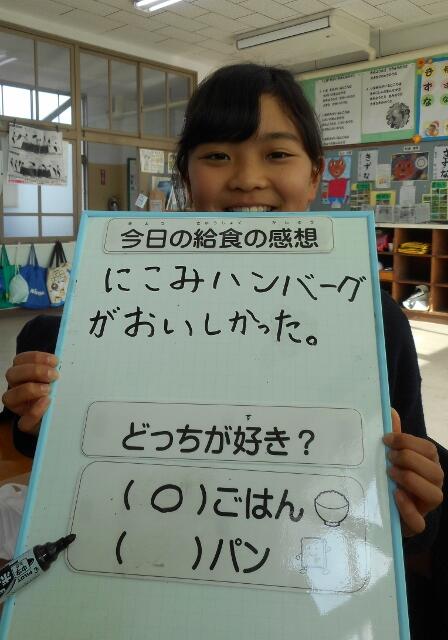 今日の給食の感想
にこみハンバーグ
がおいしかった。
どっちが好き?
(○)ごはん
( )パン
きずな
PILOT